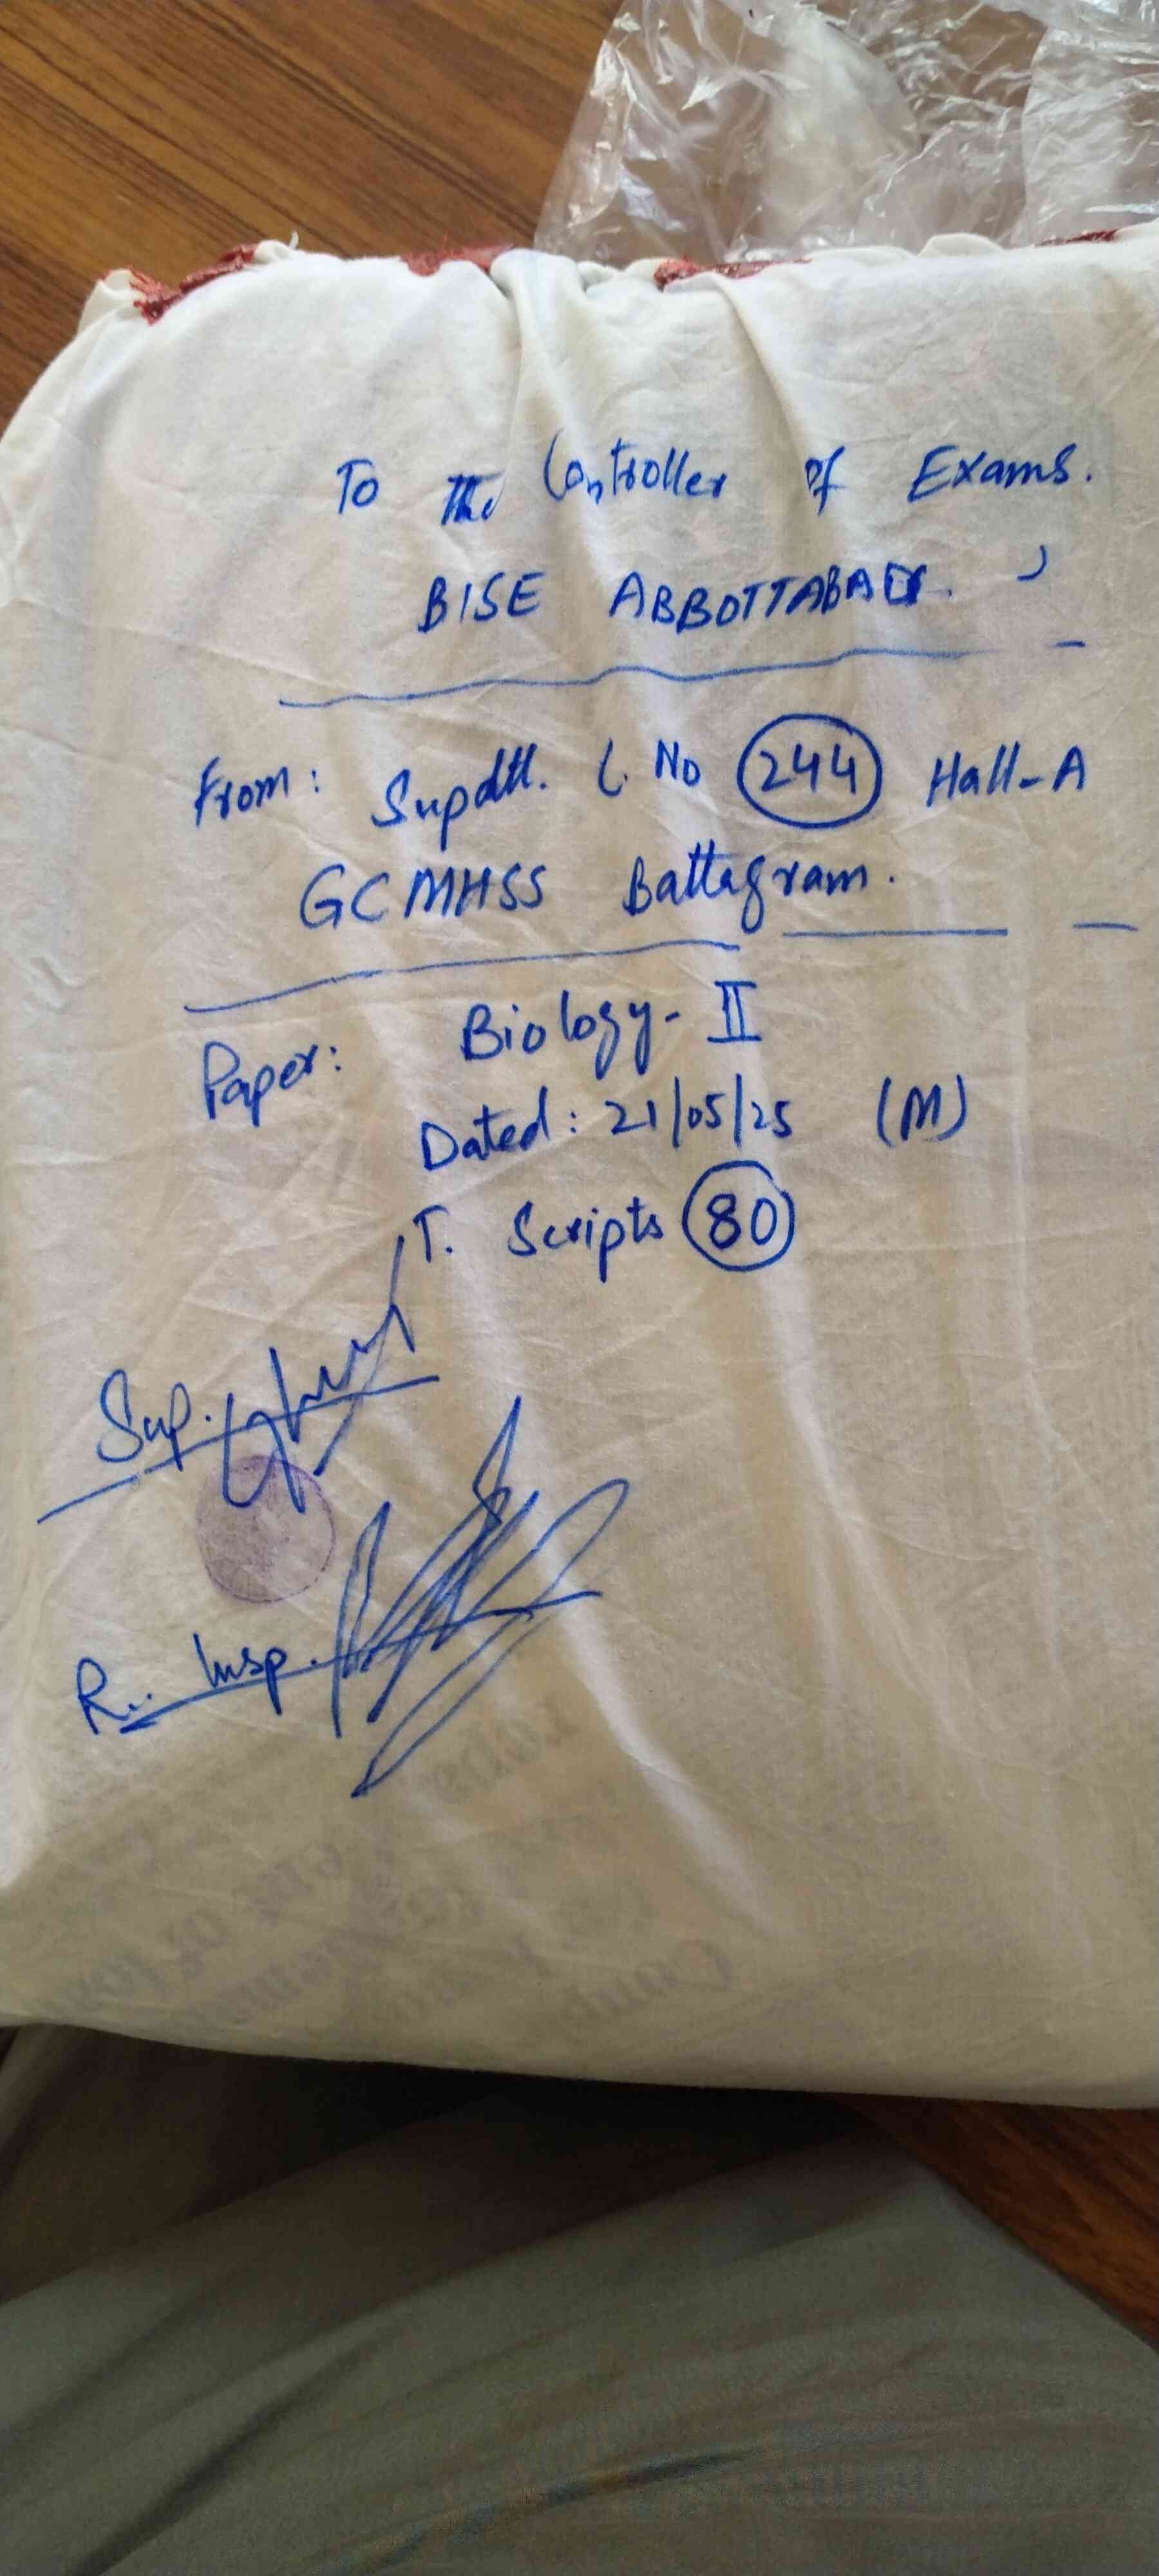 To the Controller of Exams.
BISE ABBOTTABAD.
From: Supdtt. C. No 244 Hall-A
GCMHSS Battagram.
Paper: Biology-II
Dated: 21/05/25 (M)
T. Scripts 80
Sup.
R. Insp.